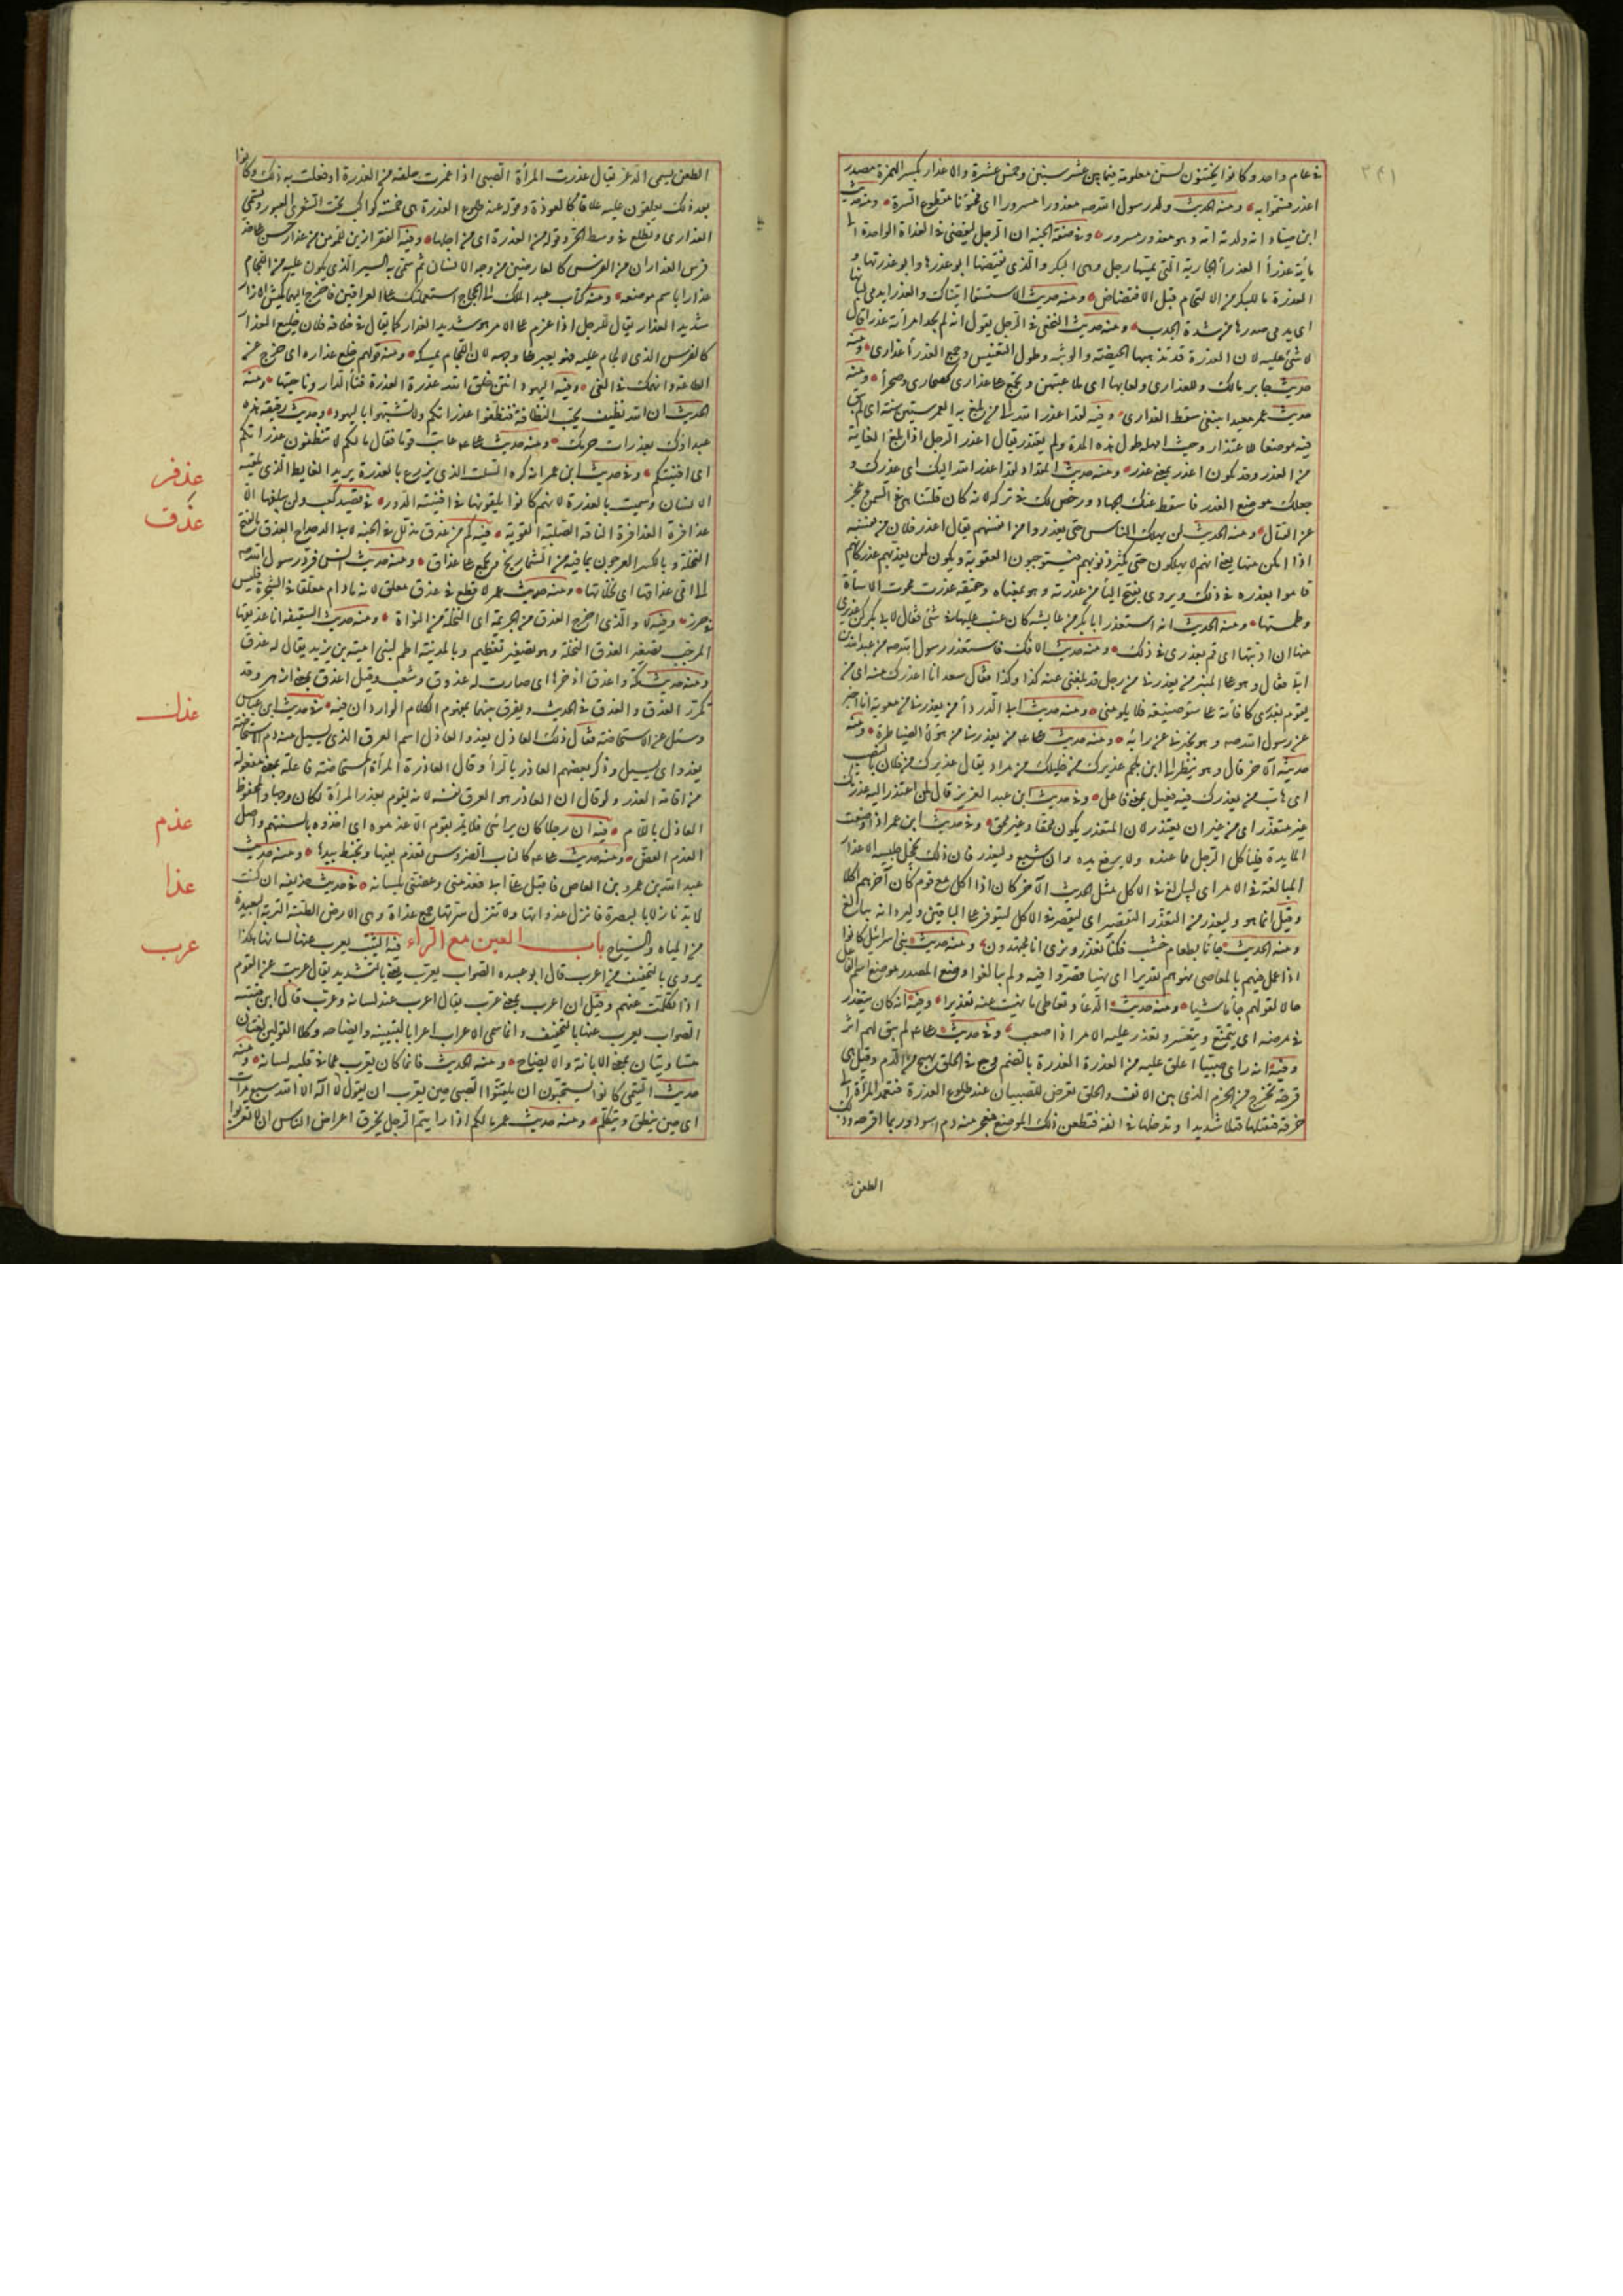 في عام واحد وكانوا يختنون لسن معلومة فيما بين عشر سنين وخمس عشرة والاعذار بكسر الهمزة مصدر
اعذر فسموا به ومنه الحديث ولد رسول الله صه معذورا مسرورا اى مختونا مقطوع السرة ومنه حديث
ابن صياد انه ولدته امه وهو معذور مسرور وفي صفة الجنة ان الرجل ليفضى في الغداة الواحدة الى
مأية عذرأ العذرأ الجارية التى لم يمسها رجل وهى البكر والذى يفتضها ابو عذرها وابو عذرتها و
العذرة ما للبكر من الالتحام قبل الافتضاض ومنه حديث الاستسقا اتيناك والعذرا يدمى لبانها
اى يدمى صدرها من شدة الجدب ومنه حديث النخعى في الرجل يقول انه لم يجد امرأته عذرا قال
لا شئ عليه لان العذرة قد تذهبها الحيضة والوثبة وطول التعنيس وجمع العذرأ عذارى ومنه
حديث جابر مالك وللعذارى ولعابها اى ملاعبتهن وتجمع على عذارى كصحارى وصحرأ ومنه
حديث عمر معيدا يبتغى سقط العذارى وفيه لقد اعذر الله الى من بلغ به العمر ستين سنة اى لم يبق
فيه موضعا للاعتذار وحيث امهله طول هذه المدة ولم يعتذر يقال اعذر الرجل اذا بلغ الغاية
من العذر وقد يكون اعذر بمعنى عذر ومنه حديث المقداد لقد اعذر الله اليك اى عذرك و
جعلك موضع العذر فاسقط عنك الجهاد ورخص لك في تركه لانه كان قد تناهى في السمن وعجز
عن القتال ومنه الحديث لن يهلك الناس حتى يعذروا من انفسهم يقال اعذر فلان من نفسه
اذا امكن منها يعنى انهم لا يهلكون حتى تكثر ذنوبهم فيستوجبون العقوبة ويكون لمن يعذبهم عذر كانهم
قاموا بعذره في ذلك ويروى بفتح اليأ من عذرته وهو بمعناه وحقيقة عذرت محوت الاساة
وطمستها ومنه الحديث انه استعذر ابا بكر من عايشة كان عتب عليها في شئ فقال لابى بكر كن عذيرى
منها ان ادبتها اى قم بعذرى في ذلك ومنه حديث الافك فاستعذر رسول الله صه من عبد الله بن
ابى فقال وهو على المنبر من يعذرنى من رجل قد بلغنى عنه كذا وكذا فقال سعد انا اعذرك منه اى من
يقوم بعذرى كافاته على سؤ صنيعه فلا يلومنى ومنه حديث ابى الدردأ من يعذرنى من معوية انا اخبره
عن رسول الله صه وهو يخبرنى عن رايه ومنه حديث على عه من يعذرنى من هؤلأ الضياطرة ومنه
حديثه الاخر قال وهو ينظر الى ابن ملجم عذيرك من خليلك من مراد يقال عذيرك من فلان بالنصب
اى هات من يعذرك فيه فعيل بمعنى فاعل وفي حديث ابن عبد العزيز قال لمن اعتذر اليه عذرتك
غير معتذر اى من غير ان يعتذر لان المعتذر يكون محقا وغير محق وفي حديث ابن عمر اذا وضعت
المايدة فليأكل الرجل مما عنده ولا يرفع يده وان شبع وليعذر فان ذلك يخجل جليسه الاعذار
المبالغة في الامر اى ليبالغ في الاكل مثل الحديث الآخر كان اذا اكل مع قوم كان آخرهم اكلا
وقيل انما هو وليعذر من التعذير التقصير اى ليقصر في الاكل ليتوفر على الباقين وليرد انه يبالغ
ومنه الحديث جأنا بطعام جشب فكنا نعذر ونرى انا مجتهدون ومنه حديث بنى اسرائيل كانوا
اذا عمل فيهم بالمعاصى نهوهم تعذيرا اى نهيا قصروا فيه ولم يبالغوا وضع المصدر موضع اسم الفاعل
حالا كقولهم جأ مشيا ومنه حديث الدعأ وتعاطى ما نهيت عنه تعذيرا وفيه انه كان يتعذر
في مرضه اى يتمنع ويتعسر وتعذر عليه الامر اذا صعب وفي حديث على عه لم يبق لهم اثر
وفيه انه راى صبيا اعلق عليه من العذرة العذرة بالضم وجع في الحلق يهيج من الدم وقيل هى
قرحة تخرج من الخرم الذى بين الانف والحلق تعرض للصبيان عند طلوع العذرة فتعمد المرأة الى
خرقة فتفتلها فتلا شديدا وتدخلها في انفه فتطعن ذلك الموضع فيتفجر منه دم اسود وربما اقرحه وذلك
الطعن
الطعن يسمى الدغر يقال عذرت المرأة الصبى اذا غمزت حلقه من العذرة او فعلت به ذلك وكانوا
بعد ذلك يعلقون عليه علاقا كالعوذة وقوله عند طلوع العذرة هى خمسة كواكب تحت الشعرى العبور وتسمى
العذارى وتطلع في وسط الحر وقوله من العذرة اى من اجلها وفيه الفقر ازين للمؤمن من عذار حسن على خد
فرس العذاران من الفرس كالعارضين من وجه الانسان ثم سمى به السير الذى يكون عليه من اللجام
عذارا باسم موضعه ومنه كتاب عبد الملك الى الحجاج استعملتك على العراقين فاخرج اليهما كميش الازار
شديد العذار يقال للرجل اذا عزم على الامر هو شديد العذار كما يقال في خلافه فلان خليع العذار
كالفرس الذى لا لجام عليه فهو يعير على وجهه لان اللجام يمسكه ومنه قولهم خلع عذاره اى خرج عن
الطاعة وانهمك في الغى وفيه اليهود انتن خلق الله عذرة العذرة فنأ الدار وناحيتها ومنه
الحديث ان الله نظيف يحب النظافة فنظفوا عذراتكم ولا تشبهوا باليهود وحديث رقيقة هذه
عبداؤك بعذرات حرمك ومنه حديث على عه عاتب قوما فقال ما لكم لا تنظفون عذراتكم
اى افنيتكم وفي حديث ابن عمر انه كره السلت الذى يزرع بالعذرة يريد الغايط الذى يلقيه
الانسان وسميت بالعذرة لانهم كانوا يلقونها في افنية الدور في قصيد كعب ولن يبلغها الا
عذافرة العذافرة الناقة الصلبة القوية فيه كم من عذق مذلل في الجنة لابى الدحداح العذق بالفتح
النخلة وبالكسر العرجون بما فيه من الشماريخ وتجمع على عذاق ومنه حديث انس فرد رسول الله صه
الى امى عذاقها اى نخلاتها ومنه حديث عمر لا قطع في عذق معلق لانه ما دام معلقا في الشجرة فليس
في حرز وفيه لا والذى اخرج العذق من الجريمة اى النخلة من النواة ومنه حديث السقيفة انا عذيقها
المرجب تصغير العذق النخلة وهو تصغير تعظيم وبالمدينة اطم لبنى امية بن يزيد يقال له عذق
ومنه حديث مكة واعذق اذخرها اى صارت له عذوق وشعب وقيل اعذق بمعنى ازهر وقد
تكرر العذق والعذق في الحديث ويفرق بينهما بمفهوم الكلام الواردان فيه في حديث ابن عباس
وسئل عن الاستحاضة فقال ذلك العاذل يغذو العاذل اسم العرق الذى يسيل منه دم الاستحاضة
يغذو اى يسيل وذكر بعضهم العاذر بالرأ وقال العاذرة المرأة المستحاضة فاعلة بمعنى مفعولة
من اقامة العذر ولو قال ان العاذر هو العرق نفسه لانه يقوم بعذر المرأة لكان وجها والمحفوظ
العاذل باللام فيه ان رجلا كان يرائى فلا يمر بقوم الا عذموه اى اخذوه بالسنتهم واصل
العذم العض ومنه حديث على عه كالناب الضروس تعذم بفيها وتخبط بيدها ومنه حديث
عبد الله بن عمرو بن العاص فاقبل على ابى فعذمنى وعضنى بلسانه في حديث حذيفة ان كنت
لا بد نازلا بالبصرة فانزل عذواتها ولا تنزل سرتها جمع عذاة وهى الارض الطيبة التربة البعيدة
من المياه والسباخ باب العين مع الراء فيه الثيب يعرب عنها لسانها هكذا
يروى بالتخفيف من اعرب قال ابو عبيد الصواب يعرب يعنى بالتشديد يقال عربت عن القوم
اذا تكلمت عنهم وقيل ان اعرب بمعنى عرب يقال اعرب عنه لسانه وعرب قال ابن قتيبة
الصواب يعرب عنها بالتخفيف وانما سمى الاعراب اعرابا لتبيينه وايضاحه وكلا القولين لغتان
متساويتان بمعنى الابانة والايضاح ومنه الحديث فانما كان يعرب عما في قلبه لسانه ومنه
حديث التيمى كانوا يستحبون ان يلقنوا الصبى حين يعرب ان يقول لا اله الا الله سبع مرات
اى حين ينطق ويتكلم ومنه حديث عمر ما لكم اذا رايتم الرجل يخرق اعراض الناس ان لا تعربوا
عذفر
عذق
عذل
عذم
عذا
عرب